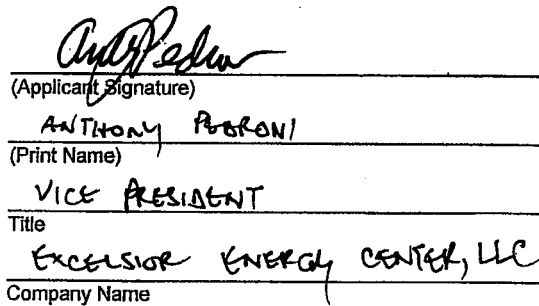 (Applicant Signature)
ANTHONY PEDRONI
(Print Name)
VICE PRESIDENT
Title
EXCELSIOR ENERGY CENTER, LLC
Company Name